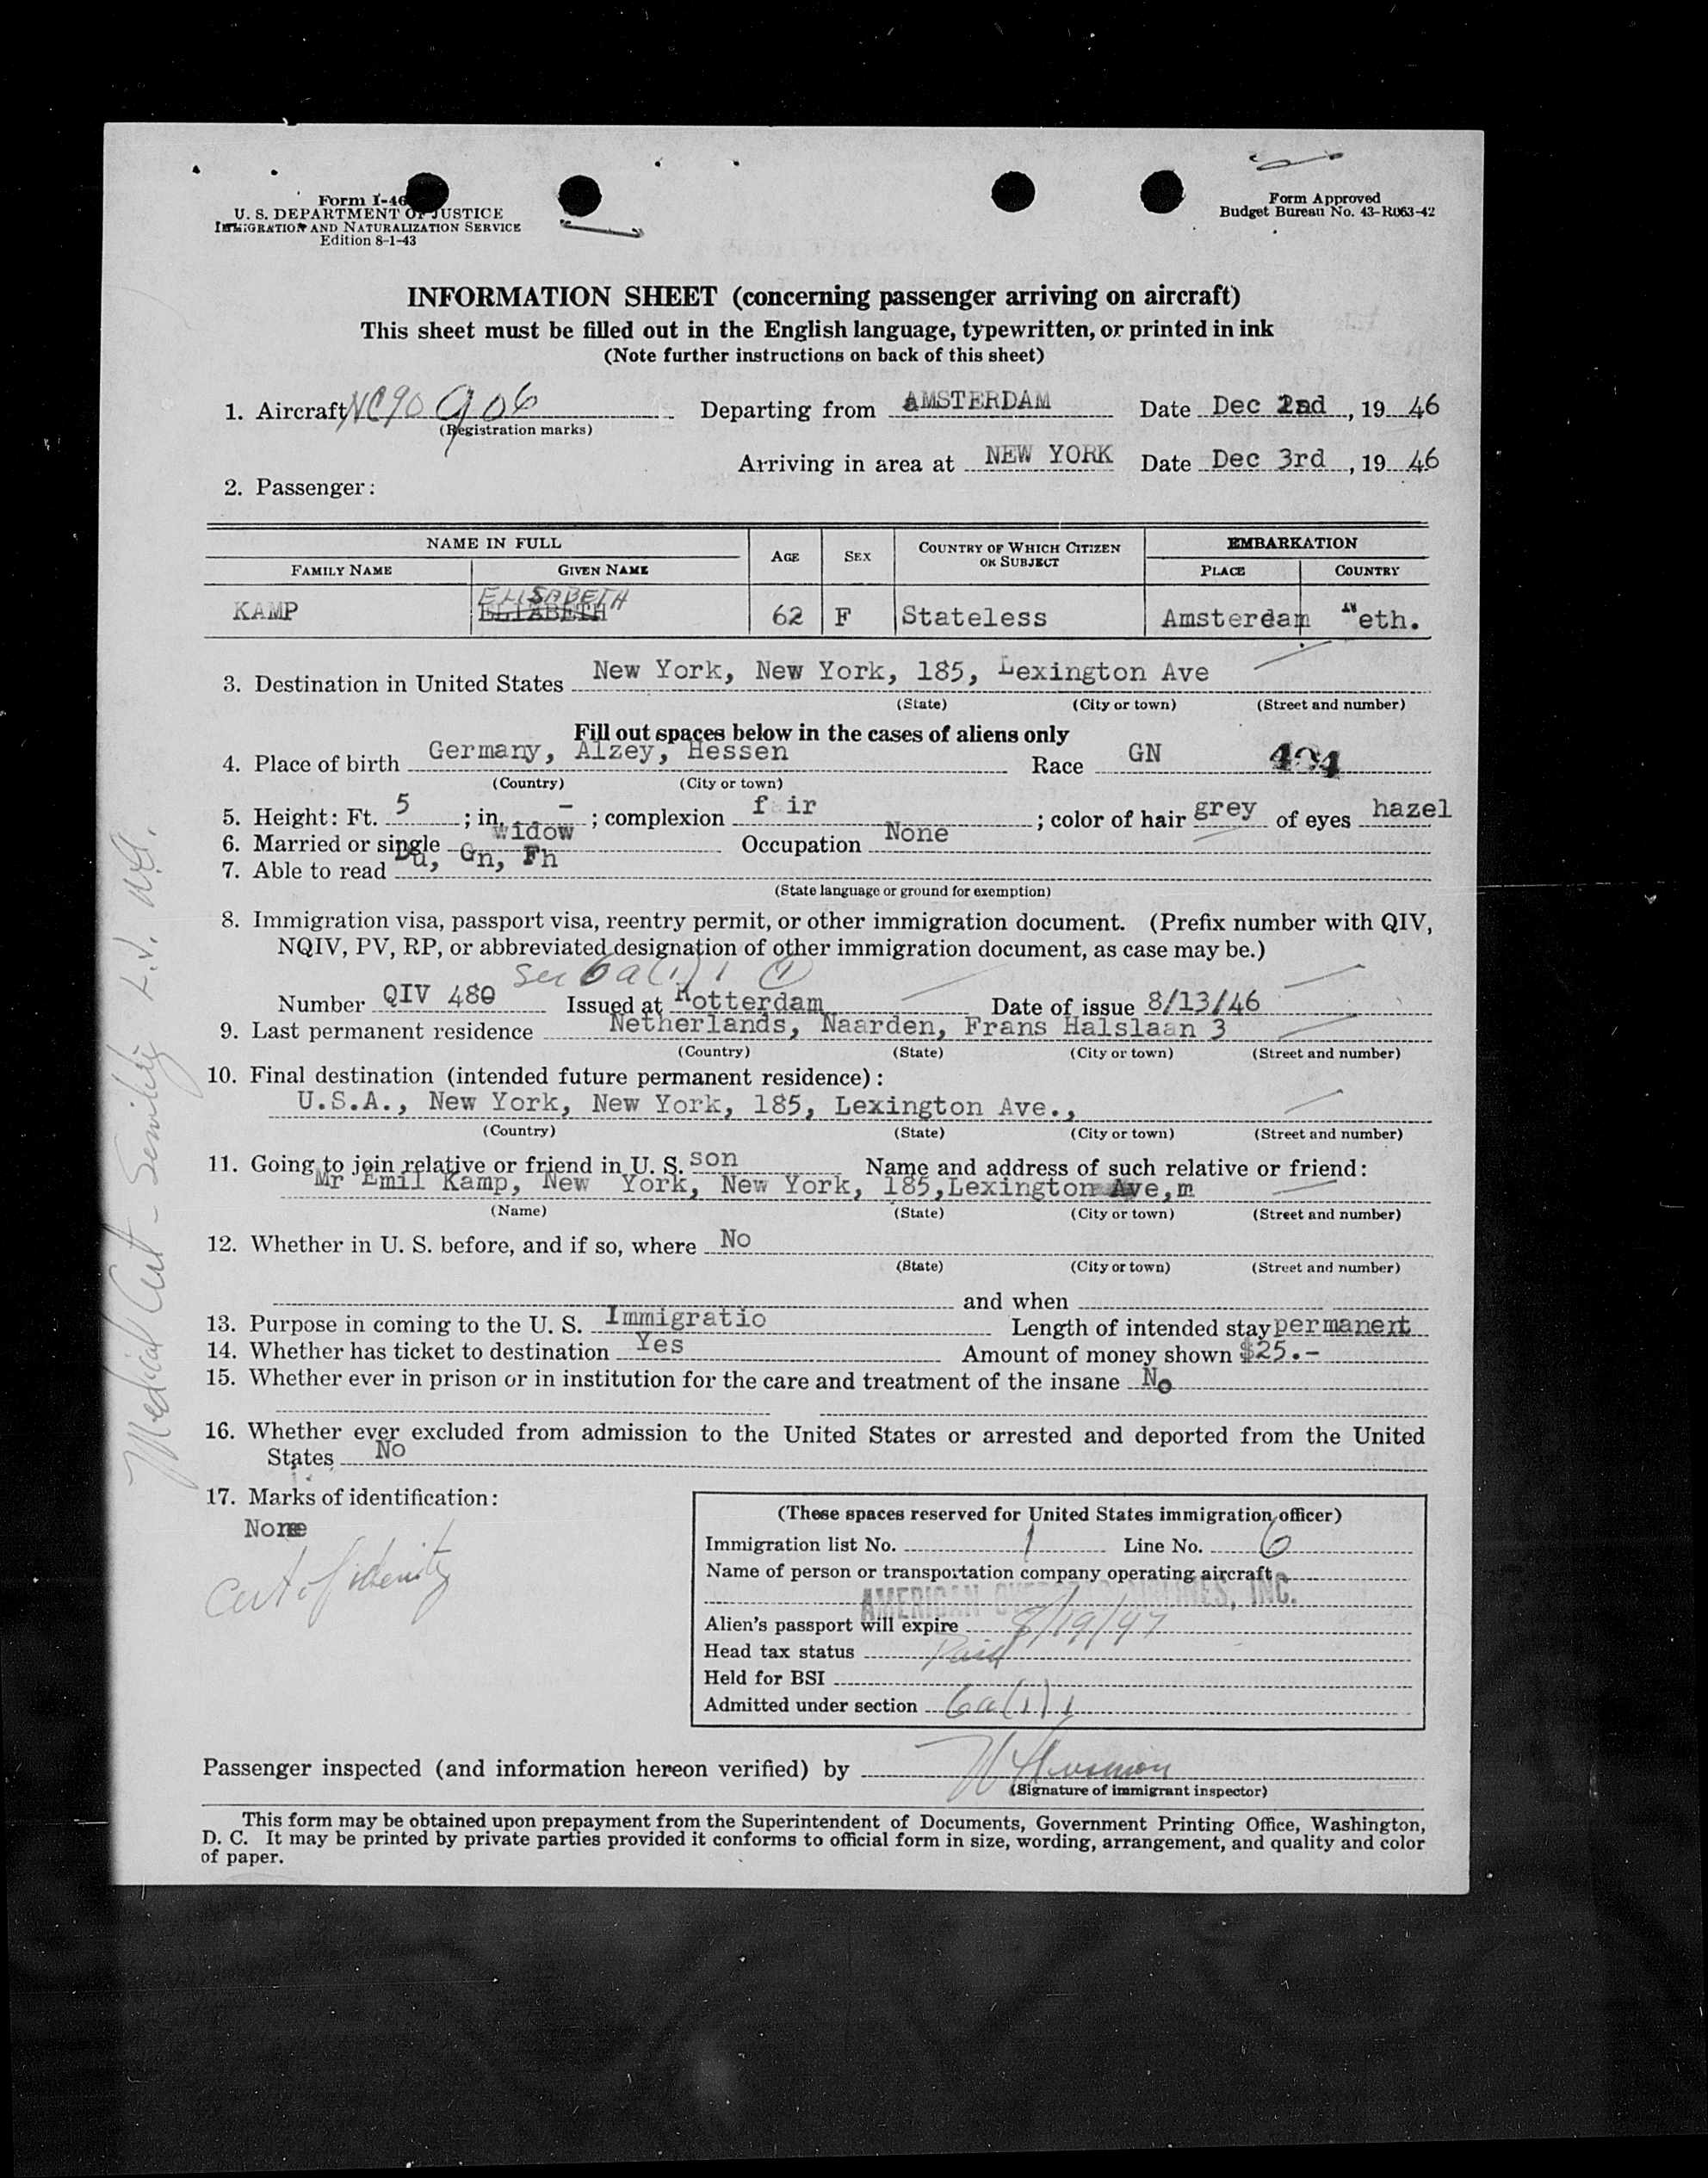 Form I-46
U. S. DEPARTMENT OF JUSTICE
IMMIGRATION AND NATURALIZATION SERVICE
Edition 8-1-43
Form Approved
Budget Bureau No. 43-R063-42
INFORMATION SHEET (concerning passenger arriving on aircraft)
This sheet must be filled out in the English language, typewritten, or printed in ink
(Note further instructions on back of this sheet)
1. Aircraft NC90 906 Departing from AMSTERDAM Date Dec 2nd, 19 46
(Registration marks)
Arriving in area at NEW YORK Date Dec 3rd, 19 46
2. Passenger:
NAME IN FULL AGE SEX COUNTRY OF WHICH CITIZEN OR SUBJECT EMBARKATION
FAMILY NAME GIVEN NAME PLACE COUNTRY
ELISABETH
KAMP ELIABETH 62 F Stateless Amsterdam Neth.
3. Destination in United States New York, New York, 185, Lexington Ave
(State) (City or town) (Street and number)
Fill out spaces below in the cases of aliens only
4. Place of birth Germany, Alzey, Hessen Race GN 494
(Country) (City or town)
5. Height: Ft. 5 ; in. - ; complexion f ir ; color of hair grey of eyes hazel
6. Married or single widow Occupation None
7. Able to read Du, Gn, Fh
(State language or ground for exemption)
8. Immigration visa, passport visa, reentry permit, or other immigration document. (Prefix number with QIV,
NQIV, PV, RP, or abbreviated designation of other immigration document, as case may be.)
Sec 6a(1) 1 (1)
Number QIV 480 Issued at Rotterdam Date of issue 8/13/46
9. Last permanent residence Netherlands, Naarden, Frans Halslaan 3
(Country) (State) (City or town) (Street and number)
10. Final destination (intended future permanent residence):
U.S.A., New York, New York, 185, Lexington Ave.,
(Country) (State) (City or town) (Street and number)
11. Going to join relative or friend in U. S. son Name and address of such relative or friend:
Mr Emil Kamp, New York, New York, 185,Lexington Ave,m
(Name) (State) (City or town) (Street and number)
12. Whether in U. S. before, and if so, where No
(State) (City or town) (Street and number)
and when
13. Purpose in coming to the U. S. Immigratio Length of intended stay permanent
14. Whether has ticket to destination Yes Amount of money shown $25.-
15. Whether ever in prison or in institution for the care and treatment of the insane No
16. Whether ever excluded from admission to the United States or arrested and deported from the United
States No
17. Marks of identification:
None
Cert of idenity
(These spaces reserved for United States immigration officer)
Immigration list No. 1 Line No. 6
Name of person or transportation company operating aircraft
AMERICAN OVERSEAS AIRLINES, INC.
Alien's passport will expire 8/19/47
Head tax status Paid
Held for BSI
Admitted under section 6a(1) 1
Passenger inspected (and information hereon verified) by
(Signature of immigrant inspector)
This form may be obtained upon prepayment from the Superintendent of Documents, Government Printing Office, Washington,
D. C. It may be printed by private parties provided it conforms to official form in size, wording, arrangement, and quality and color
of paper.
Medical Cert - Senility